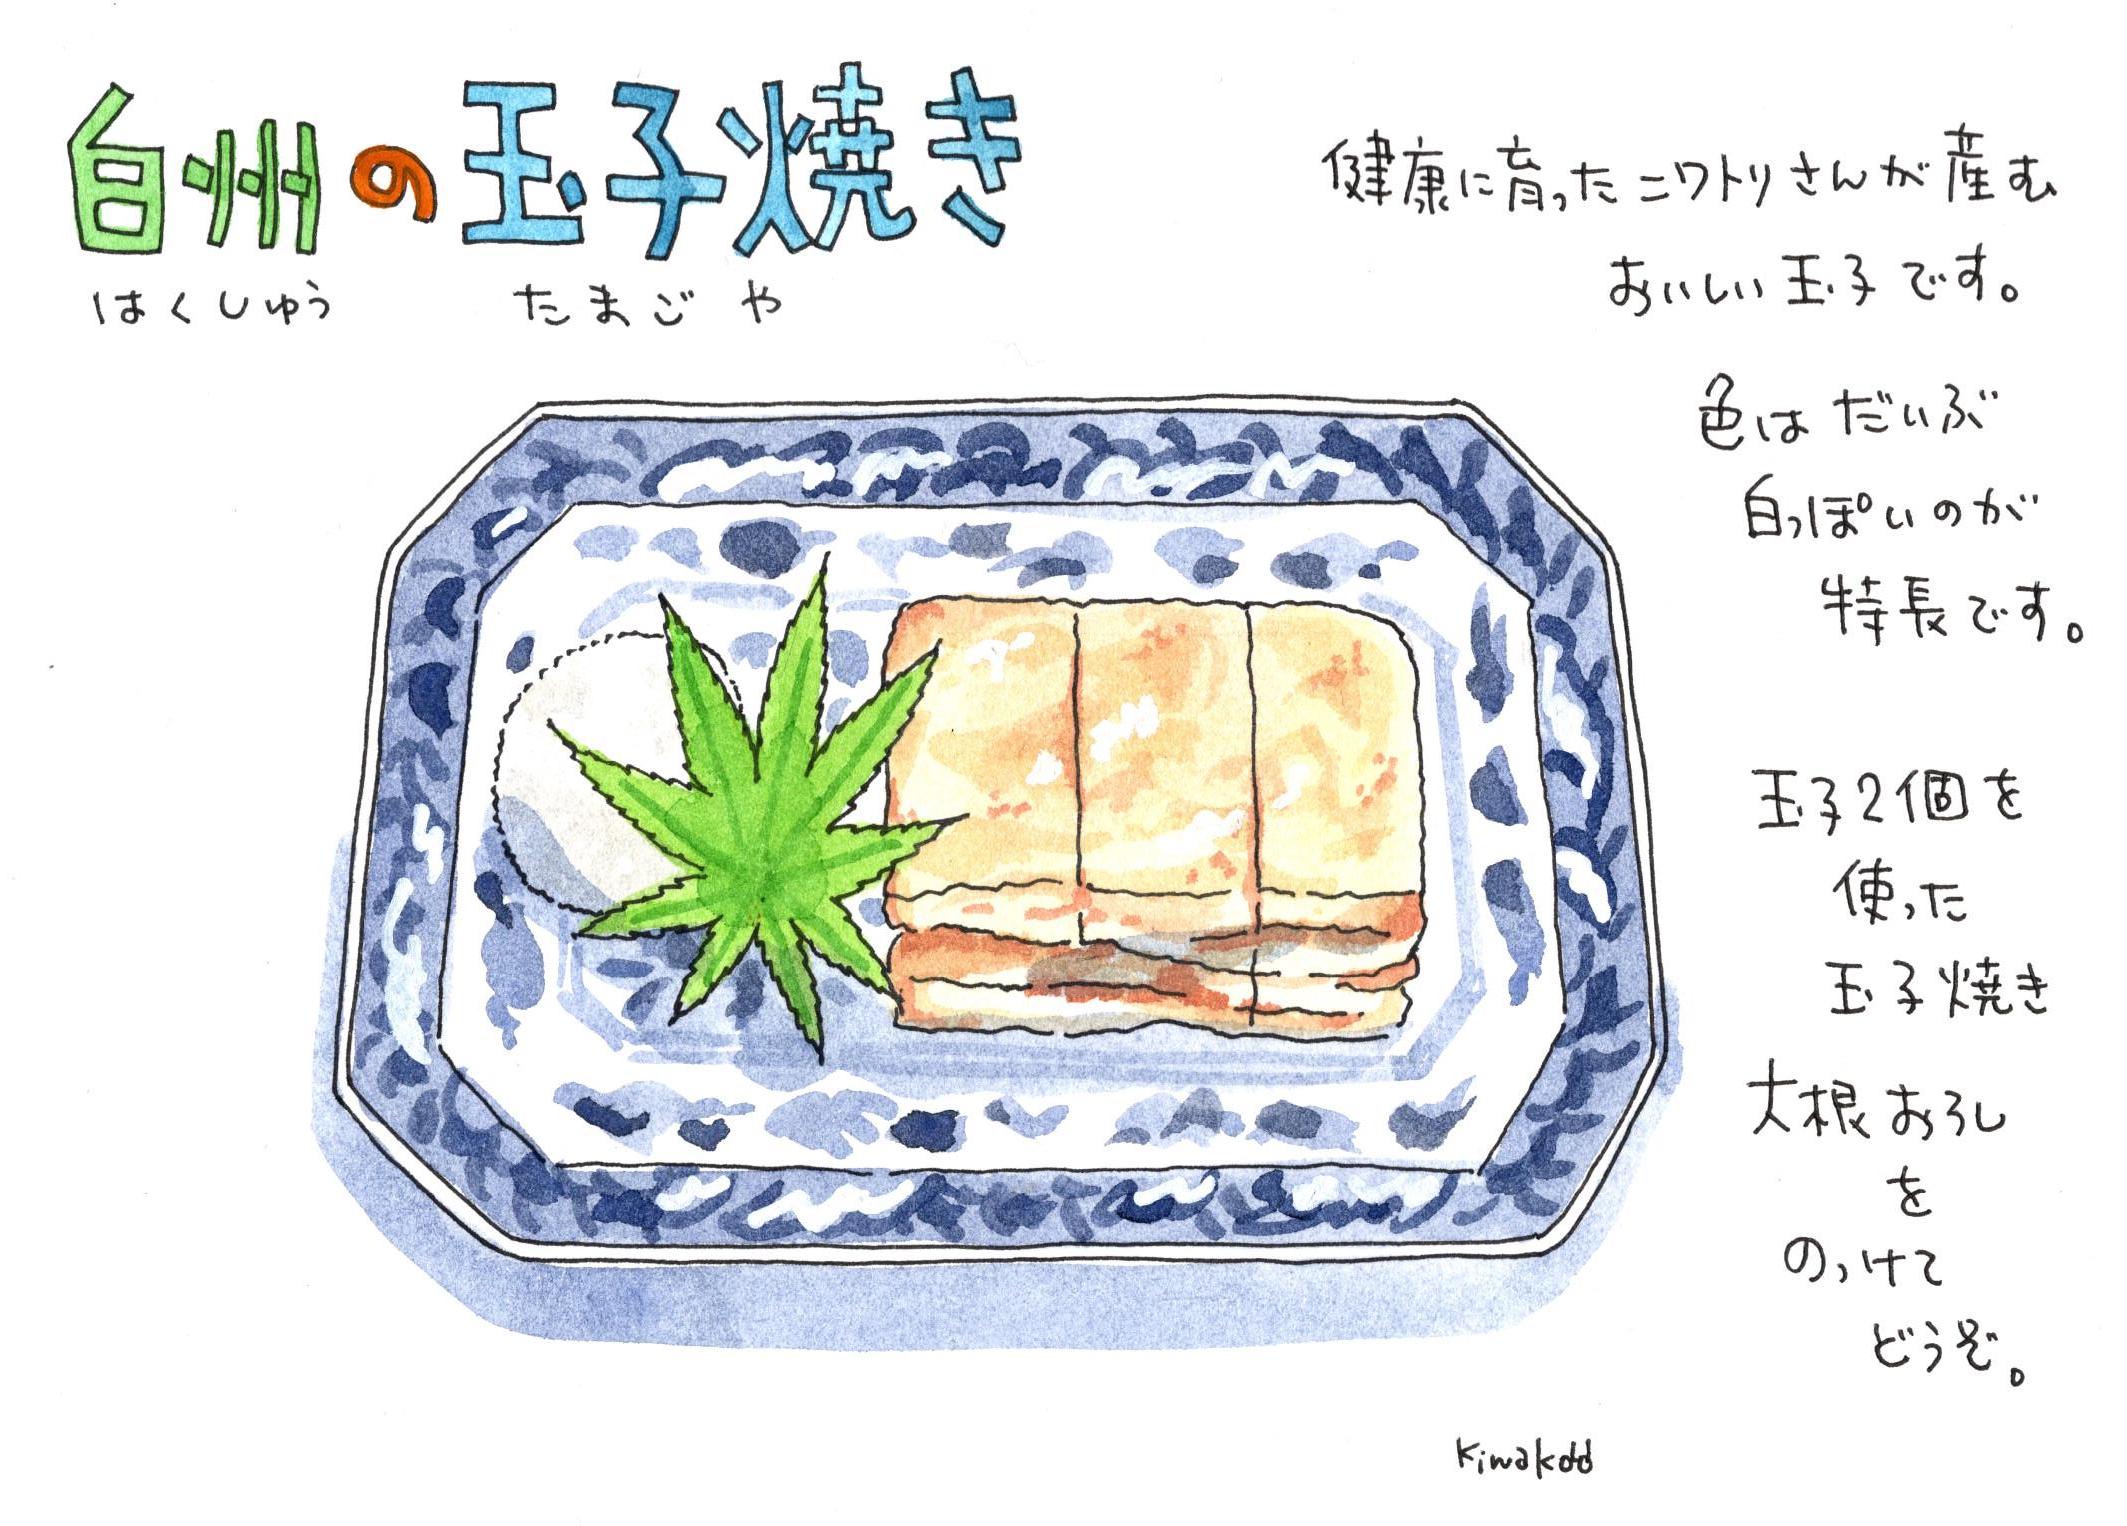 白州の玉子焼き
はくしゅう たまごや
健康に育ったニワトリさんが産む
おいしい玉子です。
色はだいぶ
白っぽいのが
特長です。
玉子2個を
使った
玉子焼き
大根おろし
を
のっけて
どうぞ。
kiwakodd